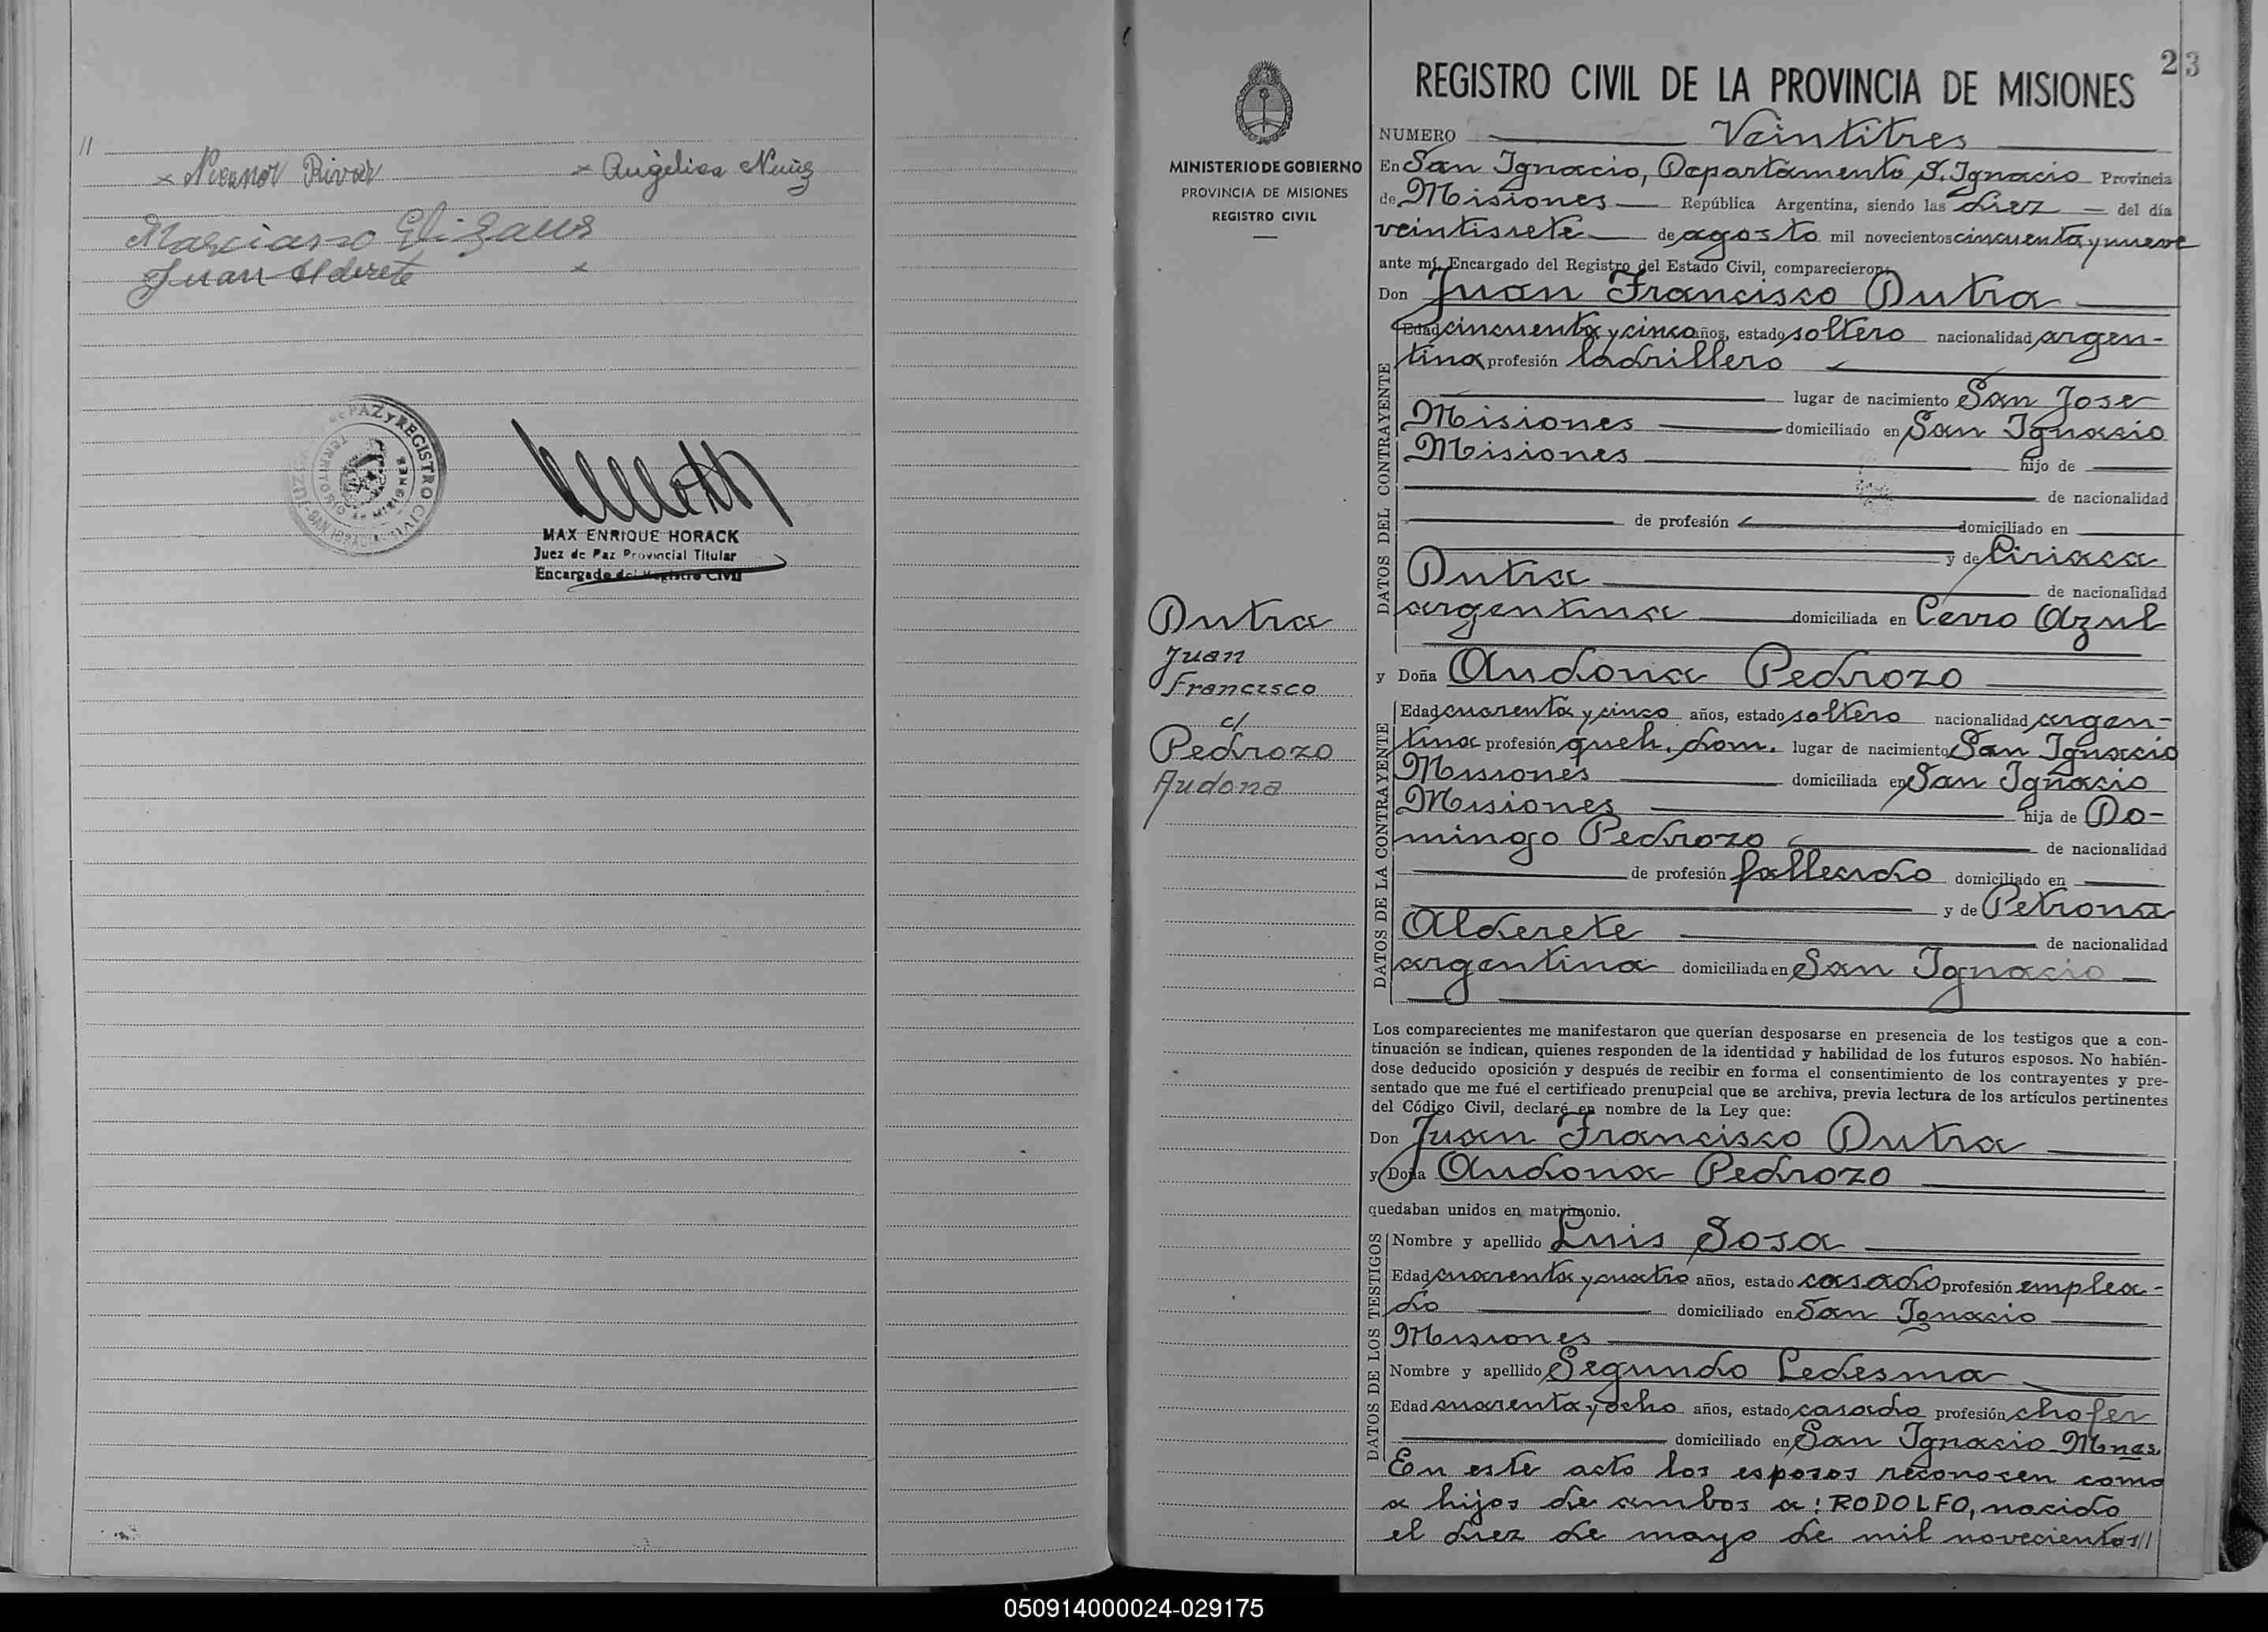 //
x Nicanor Rivas x Angélica Nuñez
Marciano
Juan Alderete x
PAZ Y REGISTRO CIVIL
MAX ENRIQUE HORACK
Juez de Paz Provincial Titular
Encargado del Registro Civil
MINISTERIO DE GOBIERNO
PROVINCIA DE MISIONES
REGISTRO CIVIL
Dutra
Juan
Francisco
c/
Pedrozo
Audona
23
REGISTRO CIVIL DE LA PROVINCIA DE MISIONES
NUMERO Veintitres
En San Ignacio, Departamento S. Ignacio Provincia
de Misiones República Argentina, siendo las diez del día
veintisiete de agosto mil novecientos cincuenta y nueve
ante mí, Encargado del Registro del Estado Civil, comparecieron:
Don Juan Francisco Dutra
DATOS DEL CONTRAYENTE
Edad cincuenta y cinco años, estado soltero nacionalidad argen-
tina profesión ladrillero
lugar de nacimiento San Jose
Misiones domiciliado en San Ignacio
Misiones hijo de
de nacionalidad
de profesión domiciliado en
y de Ciriaca
Dutra de nacionalidad
argentina domiciliada en Cerro Azul
y Doña Audona Pedrozo
DATOS DE LA CONTRAYENTE
Edad cuarenta y cinco años, estado soltero nacionalidad argen-
tina profesión queh. dom. lugar de nacimiento San Ignacio
Misiones domiciliada en San Ignacio
Misiones hija de Do-
mingo Pedrozo de nacionalidad
de profesión fallecido domiciliado en
y de Petrona
Alderete de nacionalidad
argentina domiciliada en San Ignacio
Los comparecientes me manifestaron que querían desposarse en presencia de los testigos que a con-
tinuación se indican, quienes responden de la identidad y habilidad de los futuros esposos. No habién-
dose deducido oposición y después de recibir en forma el consentimiento de los contrayentes y pre-
sentado que me fué el certificado prenupcial que se archiva, previa lectura de los artículos pertinentes
del Código Civil, declaré en nombre de la Ley que:
Don Juan Francisco Dutra
y Doña Audona Pedrozo
quedaban unidos en matrimonio.
DATOS DE LOS TESTIGOS
Nombre y apellido Luis Sosa
Edad cuarenta y cuatro años, estado casado profesión emplea-
do domiciliado en San Ignacio
Misiones
Nombre y apellido Segundo Ledesma
Edad cuarenta y ocho años, estado casado profesión chofer
domiciliado en San Ignacio Mnes
En este acto los esposos reconocen como
a hijos de ambos a: RODOLFO, nacido
el diez de mayo de mil novecientos//
050914000024-029175